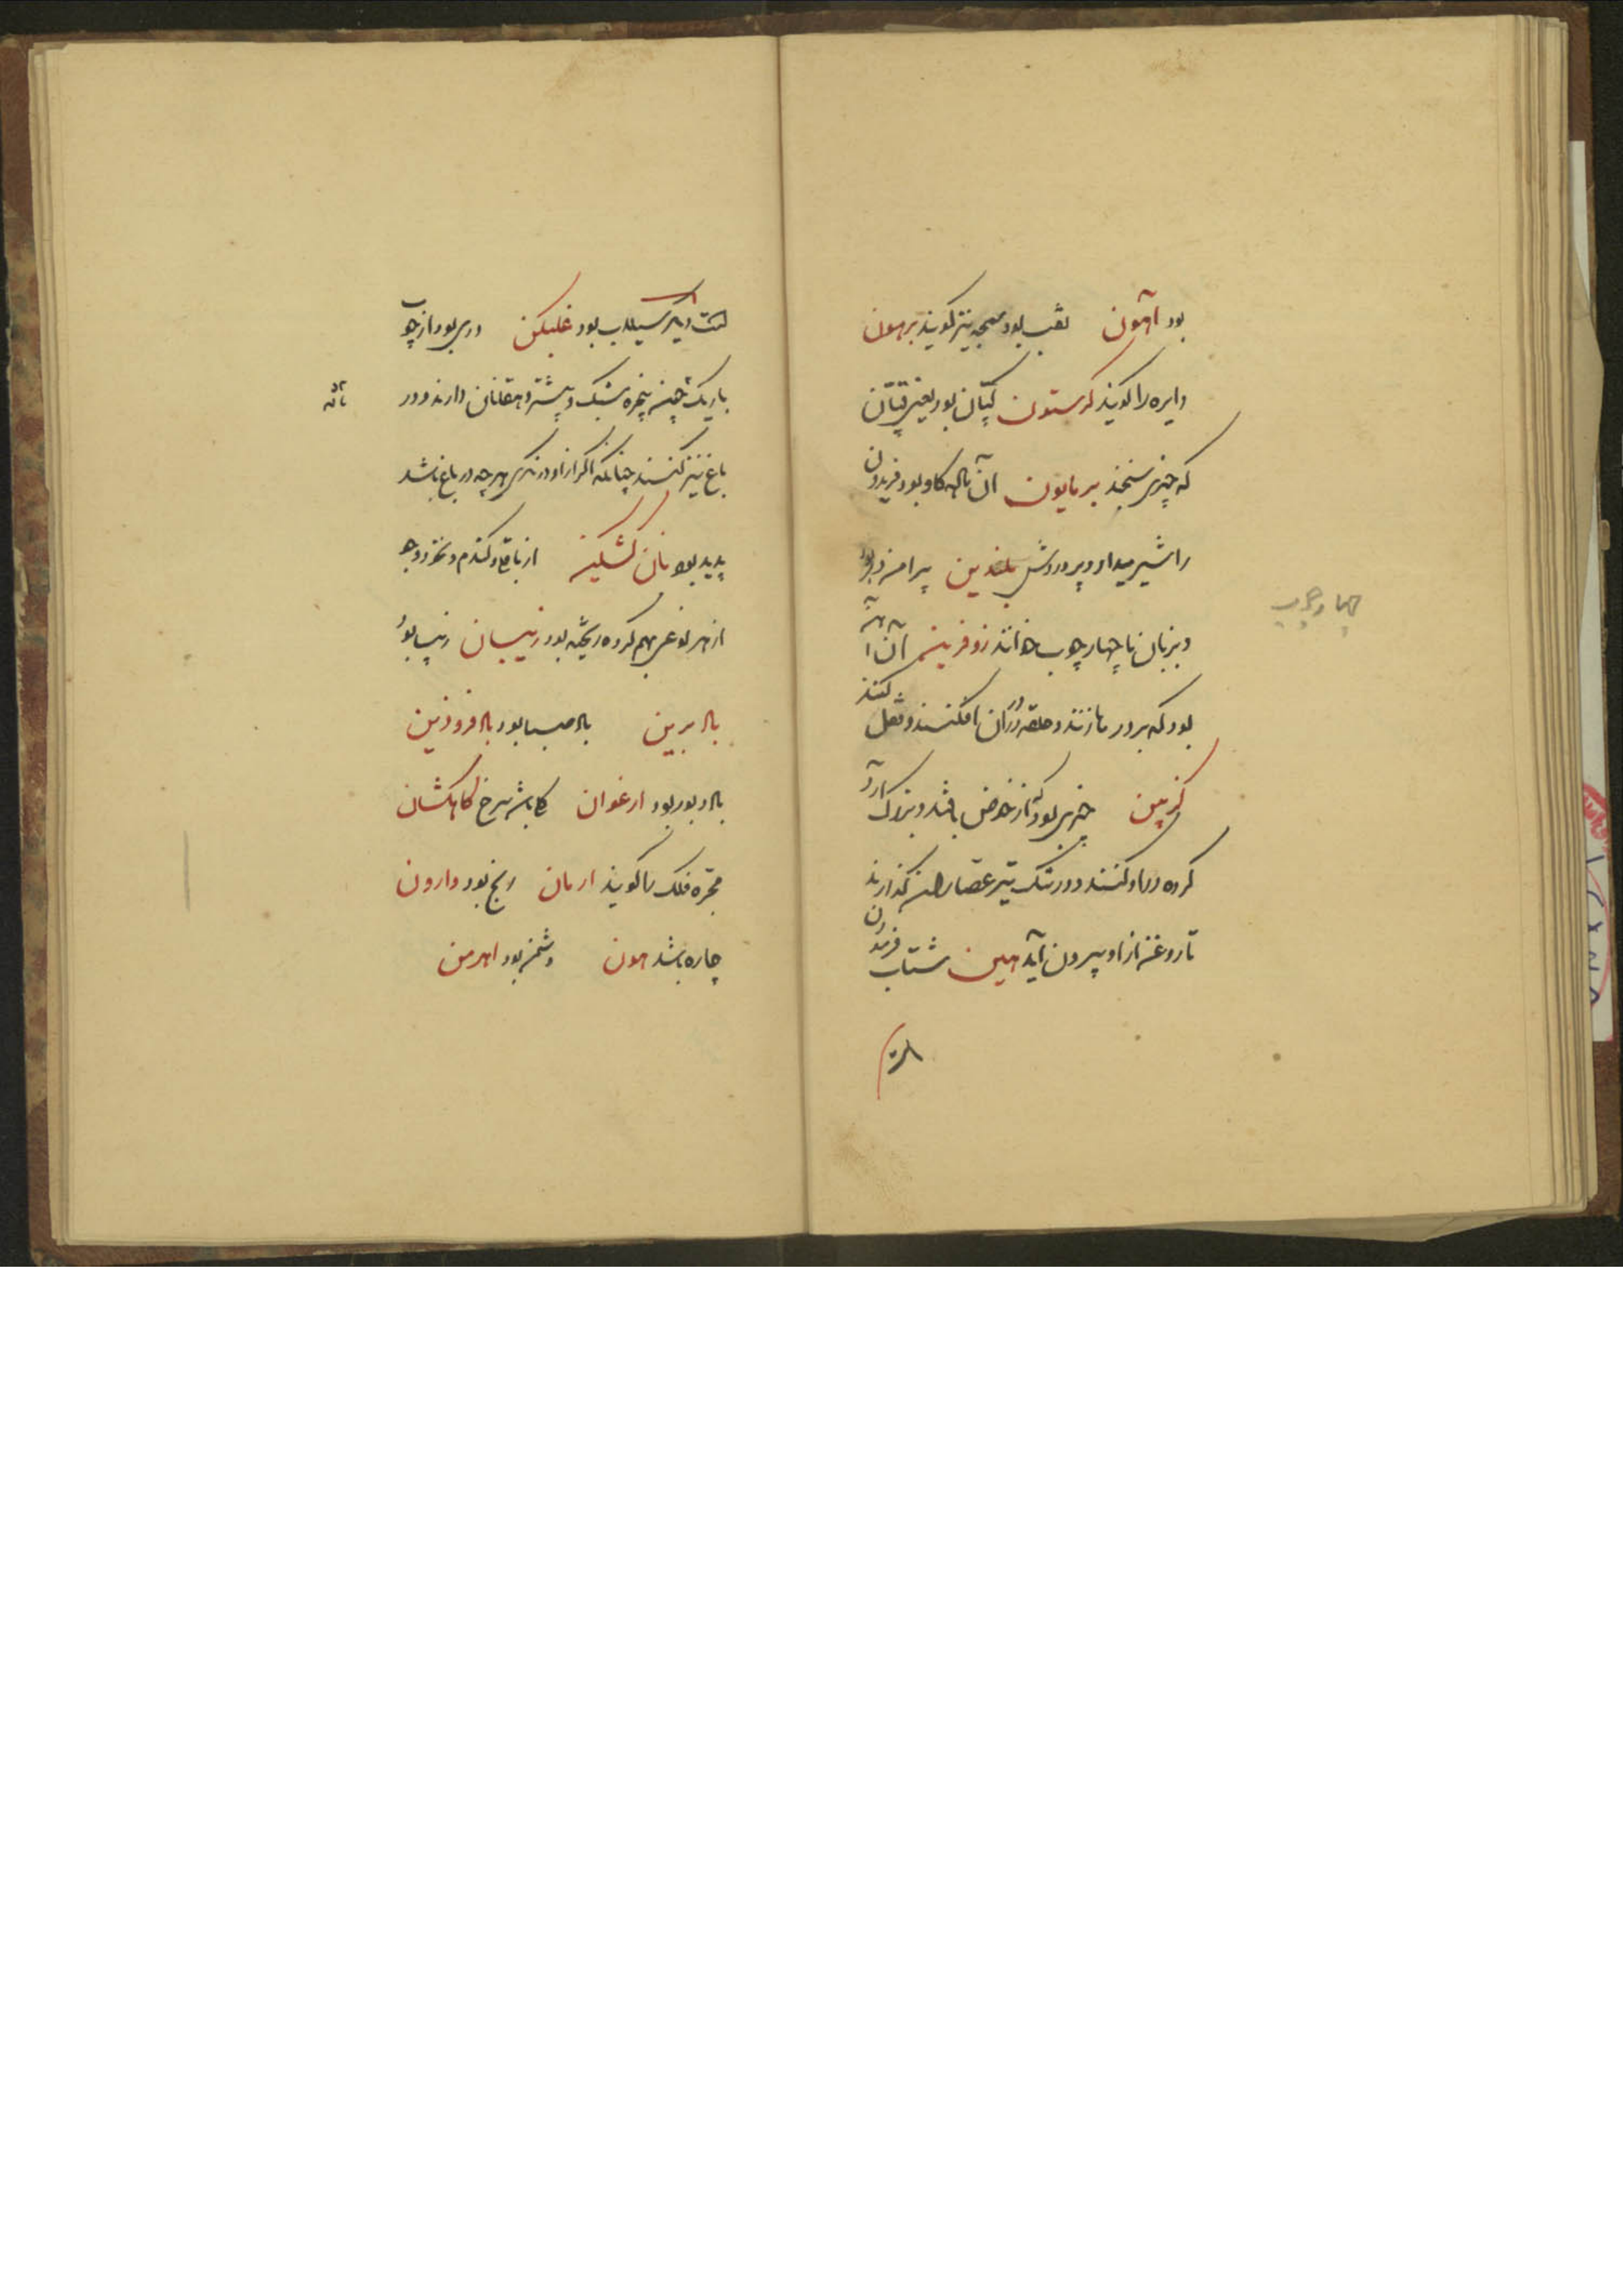 بود آهون نقب بود سمجه نیز گویند برهون
دایره را گویند کرستون کپان بود یعنی قپان
که چیزی سنجند برمایون آن ماله گاو بود فریدون
را شیر میداد و پروردش بلندین پیرامن در بود
و بزبان ما چهار چوب خوانند زوفرین آن آهن
بود که بر در ها زنند و حلقه در آن افکنند و قفل کنند
کرپین چیزی بود که از خوص بافند و بزرک آرد
کرده در او کنند و در تنک تیر عصاران گذارند
تا روغن از او بیرون آید هین شتاب
چهارچوب
لخت سیلاب بود غلبکن دری بود از چوب
باریک چون پنجره مشبک و بیشتر دهقانان دارند و در
باغ نیز کنند چنانکه اگر از او درنگری هر چه در باغ باشد
پدید بود نان کشکین از باقلی و گندم و نخود و جو
از هر نوعی بهم کرده ریخته بود زیبان زیبا بود
باد برین باد صبا بود باد فرودین
باد دبور بود ارغوان گیاهی سرخ کاهکشان
مجره فلک را گویند ارمان رنج بود وارون
چاره باشد هون دشمن بود اهرمن